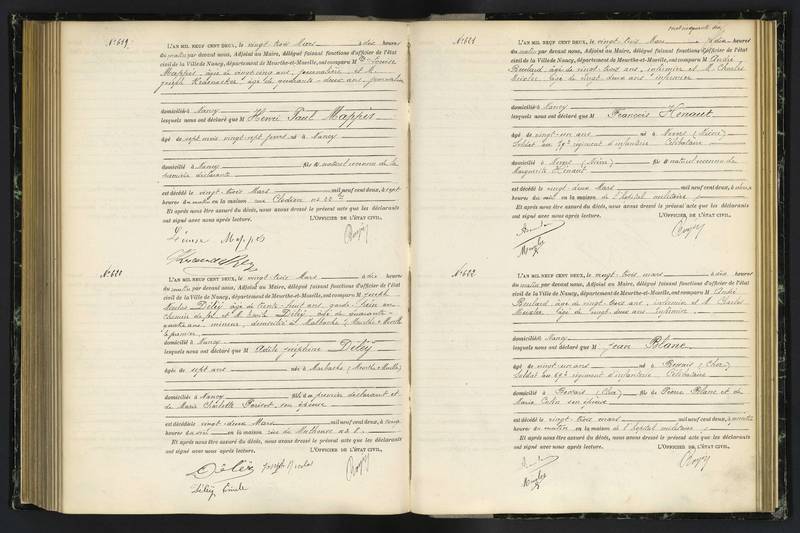 N° 619
L'AN MIL NEUF CENT DEUX, le vingt-trois Mars à dix heures
du matin par devant nous, Adjoint au Maire, délégué faisant fonctions d'officier de l'état
civil de la Ville de Nancy, département de Meurthe-et-Moselle, ont comparu M Louise
Mappès, âgée de vingt cinq ans, journalière, et M.
Joseph âgé de quarante-deux ans, journalier
domiciliés à Nancy
lesquels nous ont déclaré que M Henri Paul Mappès
âgé de sept mois vingt-sept jours né à Nancy
domicilié à Nancy fils naturel reconnu de la
première déclarante
est décédé le vingt-trois Mars mil neuf cent deux, à sept
heures du matin en la maison rue Clodion
Et après nous être assuré du décès, nous avons dressé le présent acte que les déclarants
ont signé avec nous après lecture. L'OFFICIER DE L'ÉTAT CIVIL,
Louise Mappès
N° 620
L'AN MIL NEUF CENT DEUX, le vingt-trois Mars à dix heures
du matin par devant nous, Adjoint au Maire, délégué faisant fonctions d'officier de l'état
civil de la Ville de Nancy, département de Meurthe-et-Moselle, ont comparu M Joseph
Nicolas Déléy, âgé de trente-huit ans, garde-frein au
chemin de fer, et M. Emile Déléy, âgé de quarante-
quatre ans, mineur, domicilié à Malbache (Meurthe & Moselle
le premier
domicilié à Nancy
lesquels nous ont déclaré que M Adèle Joséphine Déléy
âgée de sept ans née à Marbache (Meurthe & Moselle)
domiciliée à Nancy fille du premier déclarant et
de Marie Charlotte son épouse
est décédée le vingt-deux Mars mil neuf cent deux, à onze
heures du soir en la maison rue de Malzéville
Et après nous être assuré du décès, nous avons dressé le présent acte que les déclarants
ont signé avec nous après lecture. L'OFFICIER DE L'ÉTAT CIVIL,
Déléy Joseph Nicolas
Déléy Emile
N° 621
L'AN MIL NEUF CENT DEUX, le vingt-trois Mars à dix heures
du matin par devant nous, Adjoint au Maire, délégué faisant fonctions d'officier de l'état
civil de la Ville de Nancy, département de Meurthe-et-Moselle, ont comparu M André
âgé de vingt-trois ans, infirmier et M. Charles
âgé de vingt deux ans infirmier
domiciliés à Nancy
lesquels nous ont déclaré que M François Hénault
âgé de vingt-un ans né à Nevers (Nièvre)
Soldat au 69e régiment d'infanterie Célibataire
domicilié à Nevers (Nièvre) fils naturel reconnu de
Marguerite Hénault
est décédé le vingt-deux Mars mil neuf cent deux, à
heures du soir en la maison de l'hôpital militaire
Et après nous être assuré du décès, nous avons dressé le présent acte que les déclarants
ont signé avec nous après lecture. L'OFFICIER DE L'ÉTAT CIVIL,
N° 622
L'AN MIL NEUF CENT DEUX, le vingt-trois mars à dix heures
du matin par devant nous, Adjoint au Maire, délégué faisant fonctions d'officier de l'état
civil de la Ville de Nancy, département de Meurthe-et-Moselle, ont comparu M André
âgé de vingt-trois ans, infirmier et M. Charles
âgé de vingt deux ans infirmier
domiciliés à Nancy
lesquels nous ont déclaré que M Jean Blanc
âgé de vingt un ans né à (Cher)
Soldat au 69e régiment d'infanterie Célibataire
domicilié à (Cher) fils de Pierre Blanc et de
Marie son épouse
est décédé le vingt-trois mars mil neuf cent deux, à quatre
heures du matin en la maison de l'hôpital militaire
Et après nous être assuré du décès, nous avons dressé le présent acte que les déclarants
ont signé avec nous après lecture. L'OFFICIER DE L'ÉTAT CIVIL,